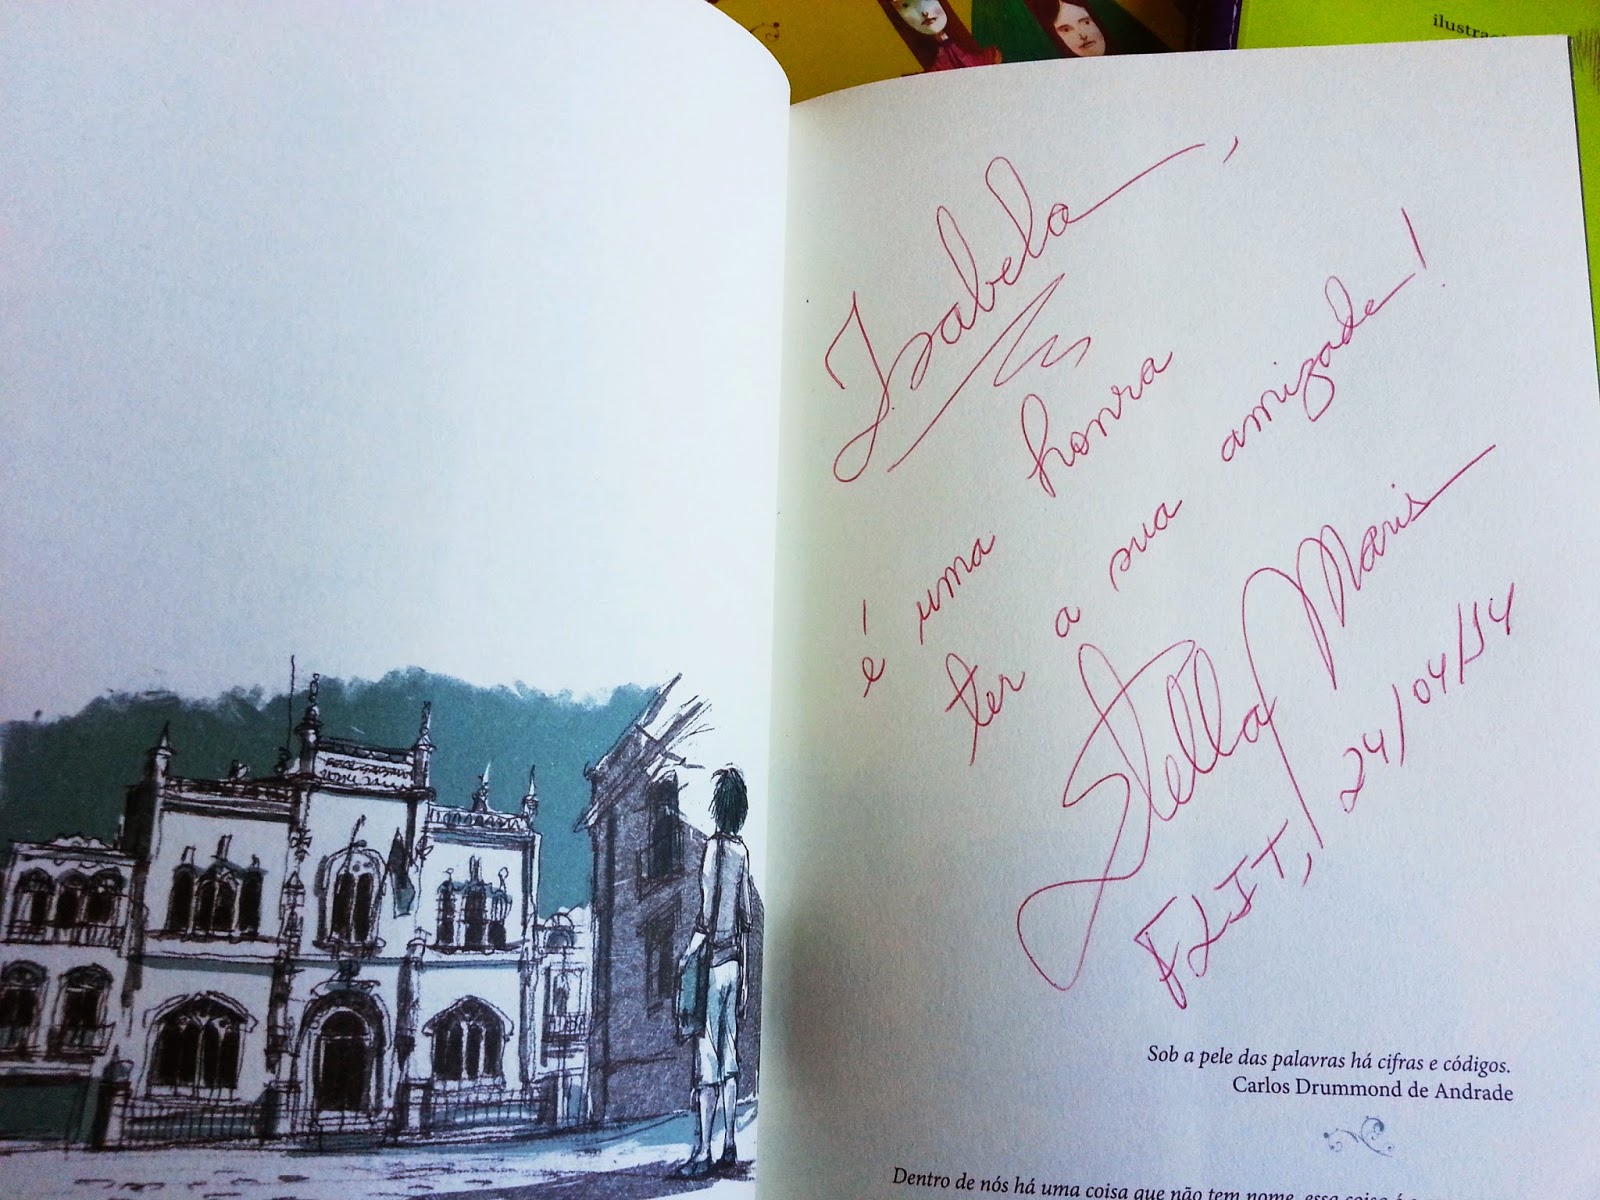 ilustraç
Isabela,
é uma honra
ter a sua amizade!
Stella Maris
FLIT, 24/04/14
Sob a pele das palavras há cifras e códigos.
Carlos Drummond de Andrade
Dentro de nós há uma coisa que não tem nome, essa coisa é